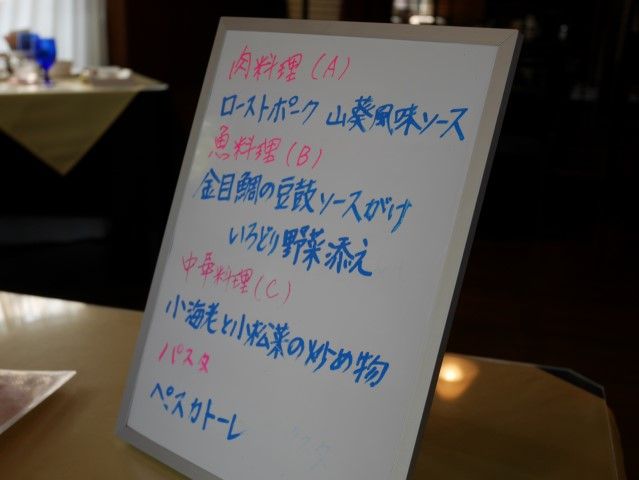 肉料理(A)
ローストポーク 山葵風味ソース
魚料理(B)
金目鯛の豆鼓ソースがけ
いろどり野菜添え
中華料理(C)
小海老と小松菜の炒め物
パスタ
ペスカトーレ